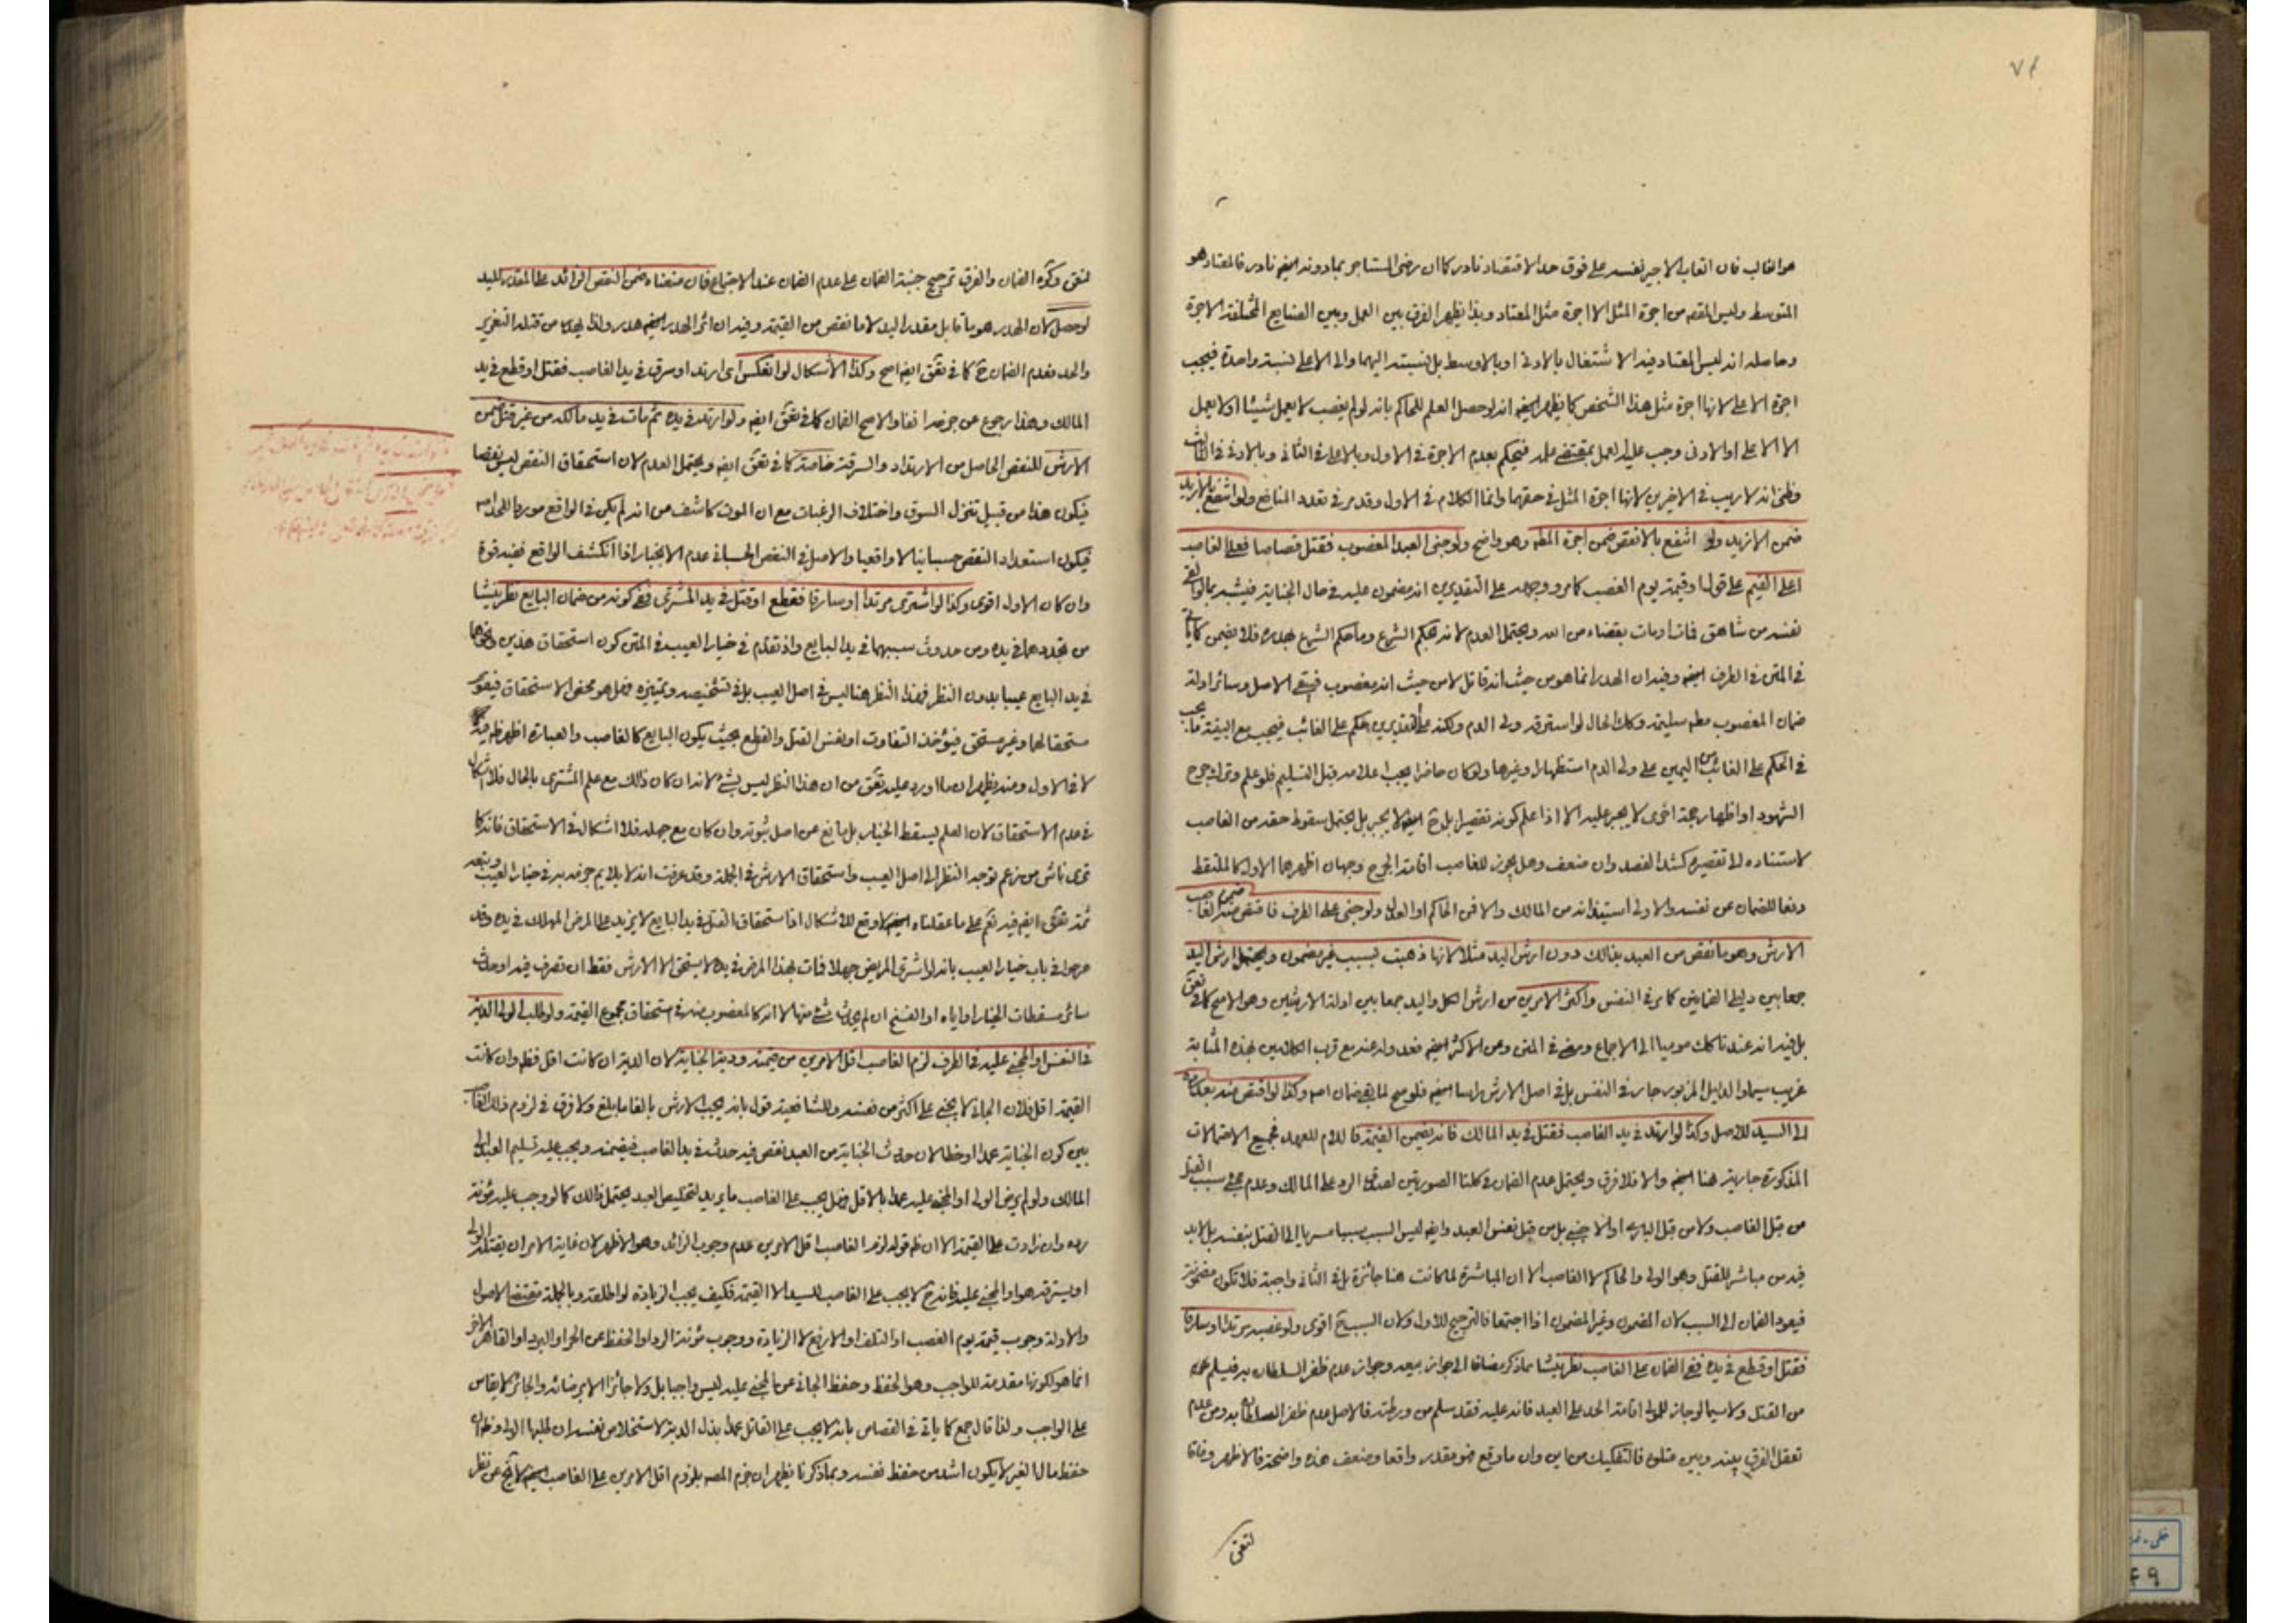 هو الغالب فان اتعاب الاجير نفسه على فوق حد الاقتصاد نادر كما ان رضى المستاجر بمادونه ايضا نادر فالمعتاد هو
المتوسط وليس المقصـ من اجرة المثل الا اجرة مثل المعتاد وبذا يظهر الفرق بين العمل وبين الصنايع المختلفة الاجرة
وحاصله انه ليس المعتاد فيه الاشتغال بالادنى او بالاوسط بل نسبته اليهما والى الاعلى نسبة واحدة فيجب
اجرة الاعلى لانها اجرة مثل هذا الشخص كما يظهر ايضا انه لو حصل العلم للحاكم بانه لو لم يغصب لا يعمل شيئا او لا يعمل
الا الاعلى او الادنى وجب عليه العمل بمقتضى علمه فيحكم بعدم الاجرة فى الاول وبالاعلى فى الثانى وبالادنى فى الثالث
وظنى انه لا ريب فى الاخيرين لانها اجرة المثل فى حقهما وانما الكلام فى الاول وقد مر فى تعدد المنافع ولو انتفع بالازيد
ضمن الازيد ولو انتفع بالانقص ضمن اجرة المطـ وهو واضح ولو جنى العبد المغصوب فقتل قصاصا فعلى الغاصب
اعلى القيم على قول او قيمته يوم الغصب كما مر ووجهه على التقديرين انه مضمون عليه فى حال الجناية فيشبه بما لو القى
نفسه من شاهق فمات او مات بقضاء من الله ويحتمل العدم لانه بحكم الشرع وما حكم الشرع بهدره فلا يضمن كما ياتى
فى المتن فى الطرف ايضا وفيه ان الهدر انما هو من حيث انه قاتل لا من حيث انه مغصوب فيبقى الاصل وسائر ادلة
ضمان المغصوب مطـ سليمة وكك الحال لو استرقه ولى الدم ولكنه على التقديرين حكم على الغائب فيجب مع البينة ما يجب
فى الحكم على الغائب من اليمين على ولى الدم استظهارا وغيرها ولو كان حاضرا يجب اعلامه قبل التسليم فلو علم وترك جرح
الشهود او اظهار حجة اخرى لا يجبر عليه الا اذا علم كونه تقصيرا بل ح ايضا لا يجبر بل يحتمل سقوط حقه من الغاصب
لاستناده الى تقصيره كشد الفصد وان ضعف وهل يجوز للغاصب اقامة الجرح وجهان اظهرهما الاول كالملتقط
دفعا للضمان عن نفسه والاولى استيذانه من المالك والا فمن الحاكم او العدل ولو جنى على الطرف فاقتص منه ضمن الغاصب
الارش وهو ما نقص من العبد بذلك دون ارش اليد مثلا لانها ذهبت بسبب غير مضمون ويحتمل ارش اليد
جمعا بين دليلى الضمانين كما مر فى النفس واكثر الامرين من ارش الكل واليد جمعا بين ادلة الارشين وهو الاصح كما فى تعق
بل فيه انه عندنا كك موميا الى الاجماع ومضى فى المتن وعن الاكثر ايضا فعدوله عنه مع قرب الكلامين بهذه المثابة
غريب سيما والدليل المزبور جار فى النفس بل فى اصل الارش راسا ايضا فلو صح لما بقى ضمان اصـ وكذا لو اقتص منه بعد رده
الى السيد للاصل وكذا لو ارتد فى يد الغاصب فقتل فى يد المالك فانه يضمن القيمة فاللام للعهد فجميع الاحتمالات
المذكورة جارية هنا ايضا والا فلا فرق ويحتمل عدم الضمان فى كلتا الصورتين لصدق الرد على المالك وعدم مجئ سبب القتل
من قبل الغاصب ولا من قبل البارى او الاجنبى بل من قبل نفس العبد وايضا ليس السبب سببا مسريا الى القتل بنفسه بل لا بد
فيه من مباشر للقتل وهو الولى والحاكم لا الغاصب الا ان المباشرة لما كانت هنا جائزة بل فى الثانى واجبة فلا تكون مضمونة
فيعود الضمان الى السبب لان المضمون وغير المضمون اذا اجتمعا فالترجيح للاول ولان السبب ح اقوى ولو غصبه مرتدا او سارقا
فقتل او قطع فى يده ففى الضمان على الغاصب نظر ينشا مما ذكر مضافا الى جواز بيعه وجواز عدم ظفر السلطان به فيسلم
من القتل ولا سيما لو جاز للمولى اقامة الحد على العبد فانه عليه فقد سلم من ورطته فالاصل عدم ظفر السلطان به ومن عدم
تعقل الفرق بينه وبين متلوه فالتفكيك من اين وان ما وقع هو مقدر واقعا وضعف هذه واضحة فالاظهر وفاقا
لتعق
لتعق وكره الضمان والفرق ترجيح جنبة الضمان على عدم الضمان عند الاجتماع فان منعناه ضمن النقص الزائد على المقدر لليد
لو حصل لان الهدر هو ما قابل مقدر اليد لا ما نقص من القيمة وفيه ان اثر الهدر ايضا هدر ولذا من قتله التعزير
والحد فعدم الضمان ح كما فى تعق ايضا اصح وكذا الاشكال لو انعكس اى ارتد او سرق فى يد الغاصب فقتل او قطع فى يد
المالك وهذا رجوع عن جزمه انفا والاصح الضمان كما فى تعق ايضا ولو ارتد فى يده ثم مات فى يد مالكه من غير قتل ضمن
الارش للنقص الحاصل من الارتداد والسرقة خاصة كما فى تعق ايضا ويحتمل العدم لان استحقاق النقص ليس نقصا
فيكون هذا من قبيل تنزل السوق واختلاف الرغبات مع ان الموت كاشف من انه لم يكن فى الواقع موردا للحد اصـ
فيكون استعداد النقص حسبانيا لا واقعيا والاصل فى النقص الحسبانى عدم الانجبار اذا انكشف الواقع ففيه قوة
وان كان الاول اقوى وكذا لو اشترى مرتدا او سارقا فقطع او قتل فى يد المشترى ففى كونه من ضمان البايع نظر ينشا
من تجددهما فى يده ومن حدوث سببهما فى يد البايع واذ تقدم فى خيار العيب فى المتن كون استحقاق هذين ونحوهما
فى يد البايع عيبا بدون النظر فهذا النظر هنا ليس فى اصل العيب بل فى تشخيصه وتمييزه فهل هو محض الاستحقاق فيقوم
مستحقا لهما وغير مستحق فيؤخذ التفاوت او نفس القتل والقطع بحيث يكون البايع كالغاصب والعبارة اظهر
لا فى الاول ومنه يظهر ان ما اورد عليه تعق من ان هذا النظر ليس بشئ لانه ان كان ذلك مع علم المشترى بالحال فلا اشكال
فى عدم الاستحقاق لان العلم يسقط الخيار بل مانع عن اصل ثبوته وان كان مع جهله فلا اشكال فى الاستحقاق فانه كما
ترى ناش من زعم توجه النظر الى اصل العيب واستحقاق الارش فى الجملة وقد عرفت انه لا يلايم جزمه به فى خيار العيب وتبعه
ثمة تعق ايضا فيه نعم على ما عقلناه ايضا لا وقع للاشكال اذ استحقاق القتل فى يد البايع لا يزيد على المرض المهلك فى يده وقد
صرحوا فى باب خيار العيب بانه لو اشترى المريض جهلا فمات بهذا المرض فى يده لا يستحق الا الارش فقط ان تصرف فيه او حدث
سائر مسقطات الخيار او اياه او الفسخ ان لم يحدث شئ منها لا انه كالمغصوب منه فى استحقاق مجموع القيمة ولو طلب الولى الدية
فى النفس او المجنى عليه فى الطرف لزم الغاصب اقل الامرين من قيمته ودية الجناية لان الدية ان كانت اقل فظـ وان كانت
القيمة اقل فلان الجانى لا يجنى على اكثر من نفسه وللشافعية قول بانه يجب الارش بالغا ما بلغ ولا فرق فى لزوم ذلك الغاصب
بين كون الجناية عمدا او خطا لان حدث الجناية من العبد نقص فيه حدث فى يد الغاصب فيضمنه ويجب عليه تسليم العبد الى
المالك ولو لم يرض الولى او المجنى عليه عمدا بالاقل فهل يجب على الغاصب ما يريد لتخليص العبد يحتمل ذلك كما لو وجب عليه مؤنة
رده وان زادت على القيمة الا ان ظـ قوله لزم الغاصب اقل الامرين عدم وجوب الزائد وهو الاظهر لان غاية الامر ان يقتله الولى
او يسترقه هو او المجنى عليه فانه ح لا يجب على الغاصب للسيد الا القيمة فكيف يجب الزيادة لو اطلقه وبالجملة مقتضى الاصول
والادلة وجوب قيمته يوم الغصب او التلف او الارفع لا الزيادة ووجوب مؤنة الرد او الحفظ عن الحر او البرد او القاهر الاخر
انما هو لكونها مقدمة للواجب وهو الحفظ وحفظ الجانى عن المجنى عليه ليس واجبا بل ولا جائزا الا برضائه والجائز لا يقاس
على الواجب ولذا قال جمع كما ياتى فى القصاص بانه لا يجب على القاتل عمدا بذل الدية لاستخلاص نفسه ان طلبها الولى وظـ ان
حفظ مال الغير لا يكون اشد من حفظ نفسه وبما ذكرنا يظهر ان جزم المصـ بلزوم اقل الامرين على الغاصب ايضا لا يخ عن نظر